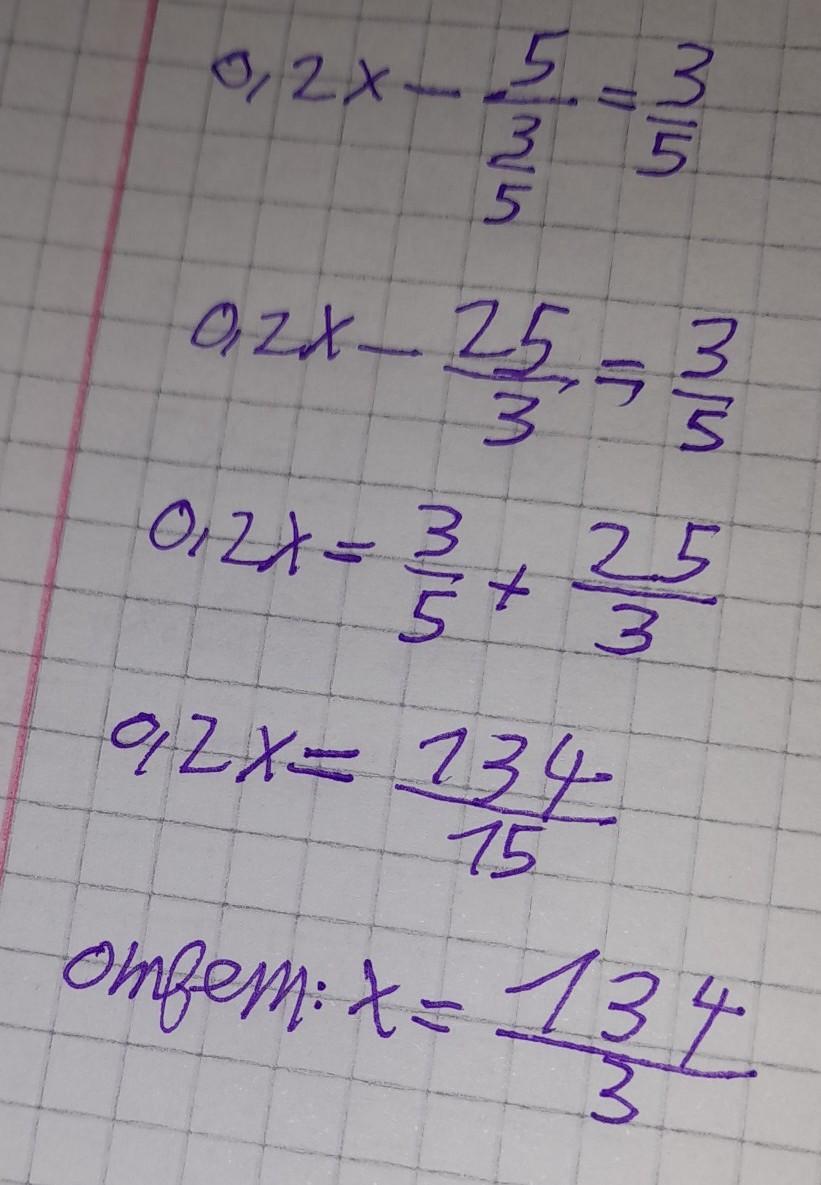 0,2x - 5/(3/5) = 3/5
0,2x - 25/3 = 3/5
0,2x = 3/5 + 25/3
0,2x = 134/15
ответ: x = 134/3